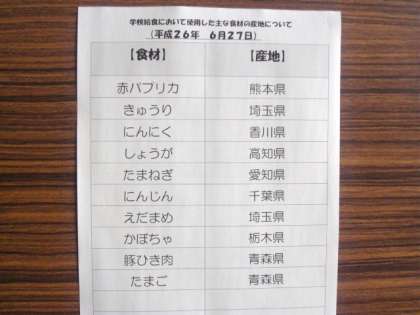 学校給食において使用した主な食材の産地について
（平成２６年　６月２７日）
【食材】　【産地】
赤パプリカ　熊本県
きゅうり　埼玉県
にんにく　香川県
しょうが　高知県
たまねぎ　愛知県
にんじん　千葉県
えだまめ　埼玉県
かぼちゃ　栃木県
豚ひき肉　青森県
たまご　青森県